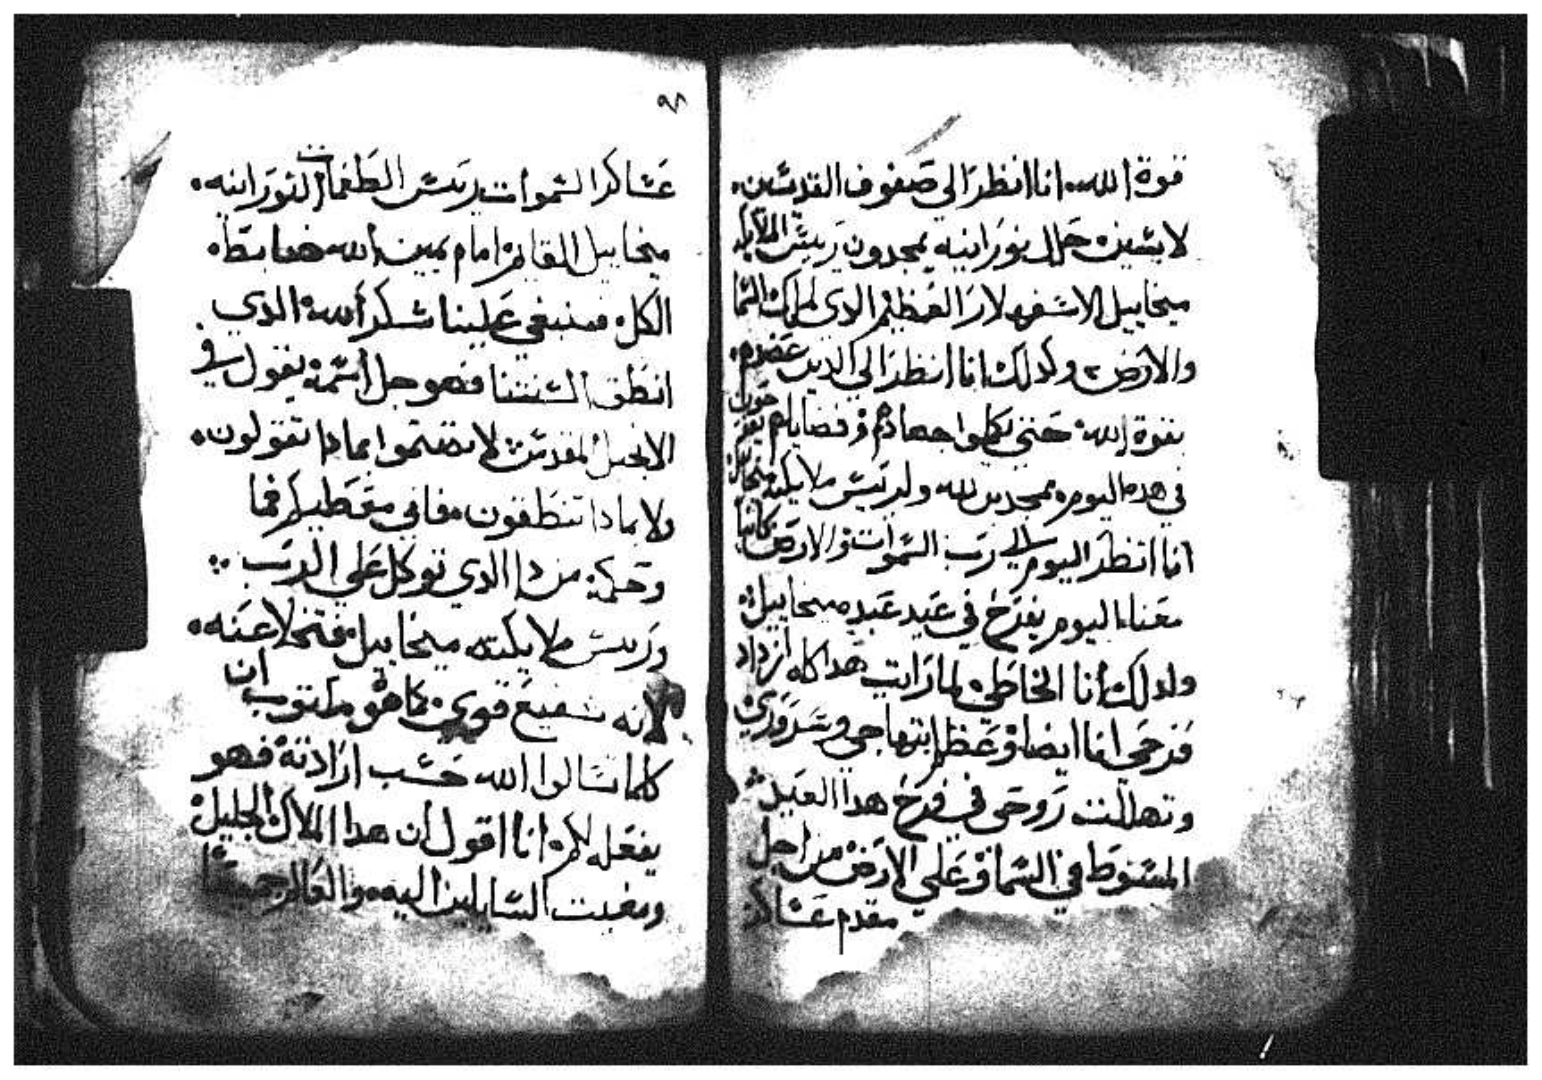 قوة الله. انا انظر الى صفوف القديسين.
لابسين حلل نورانيه يمجدون رييس الملايكه
ميخاييل الاسفهلار العظيم الذي لملك السما
والارض. وكذلك انا انظر الي الذين عضدهم
بقوة الله حتي كملوا جهادهم وقضاياهم بفرح
حول
في هذه اليوم ممجدين لله ولرييس ملايكته ميخاييل
انا انظر اليوم الي رب السموات والارض كاينا
معنا اليوم يفرح في عيد عبده ميخاييل.
ولذلك انا الخاطي لما رايت هذا كله ازداد
فرحي انا ايضا وعظم ابتهاجي وسروري
وتهللت روحي في فرح هذا العيد
المبسوط في السما وعلي الارض من اجل
مقدم عساكر
٩٨
عساكر السموات رييس الطغمات النورانيه.
ميخاييل القايم امام يمين الله ضابط
الكل. فينبغي علينا شكر الله الذي
انطق السنتنا فهو جل اسمه يقول في
الانجيل المقدس لا تهتموا بماذا تقولون.
ولا بماذا تنطقون فاني معطيكم فما
وحكمة من ذا الذي توكل علي الرب
ورييس ملايكته ميخاييل فتخلا عنه.
لانه شفيع قوي كما هو مكتوب ان
كلما سالوا الله حسب ارادته فهو
يفعله لهم. انا اقول ان هذا الملاك الجليل
ومغيت السايلين اليه. والعالم جميعا